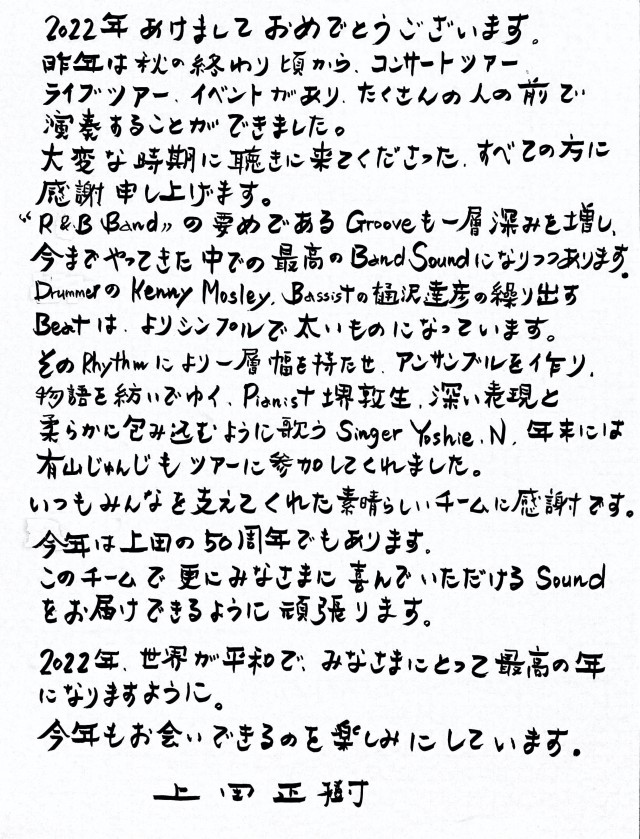 2022年 あけまして おめでとうございます。
昨年は秋の終わり頃から、コンサートツアー
ライブツアー、イベントがあり、たくさんの人の前で
演奏することができました。
大変な時期に聴きに来てくださった、すべての方に
感謝申し上げます。
“R&B Band” の要めである Grooveも一層深みを増し、
今までやってきた中での最高のBand Soundになりつつあります。
DrummerのKenny Mosley, Bassistの樋沢達彦の繰り出す
Beatは、よりシンプルで太いものになっています。
そのRhythmにより一層幅を持たせ、アンサンブルを作り、
物語を紡いでゆく、Pianist 堺敦生、深い表現と
柔らかに包み込むように歌う Singer Yoshie.N、年末には
有山じゅんじもツアーに参加してくれました。
いつもみんなを支えてくれた素晴らしいチームに感謝です。
今年は上田の50周年でもあります。
このチームで更にみなさまに喜んでいただけるSound
をお届けできるように頑張ります。
2022年、世界が平和で、みなさまにとって最高の年
になりますように。
今年もお会いできるのを楽しみにしています。
上田正樹